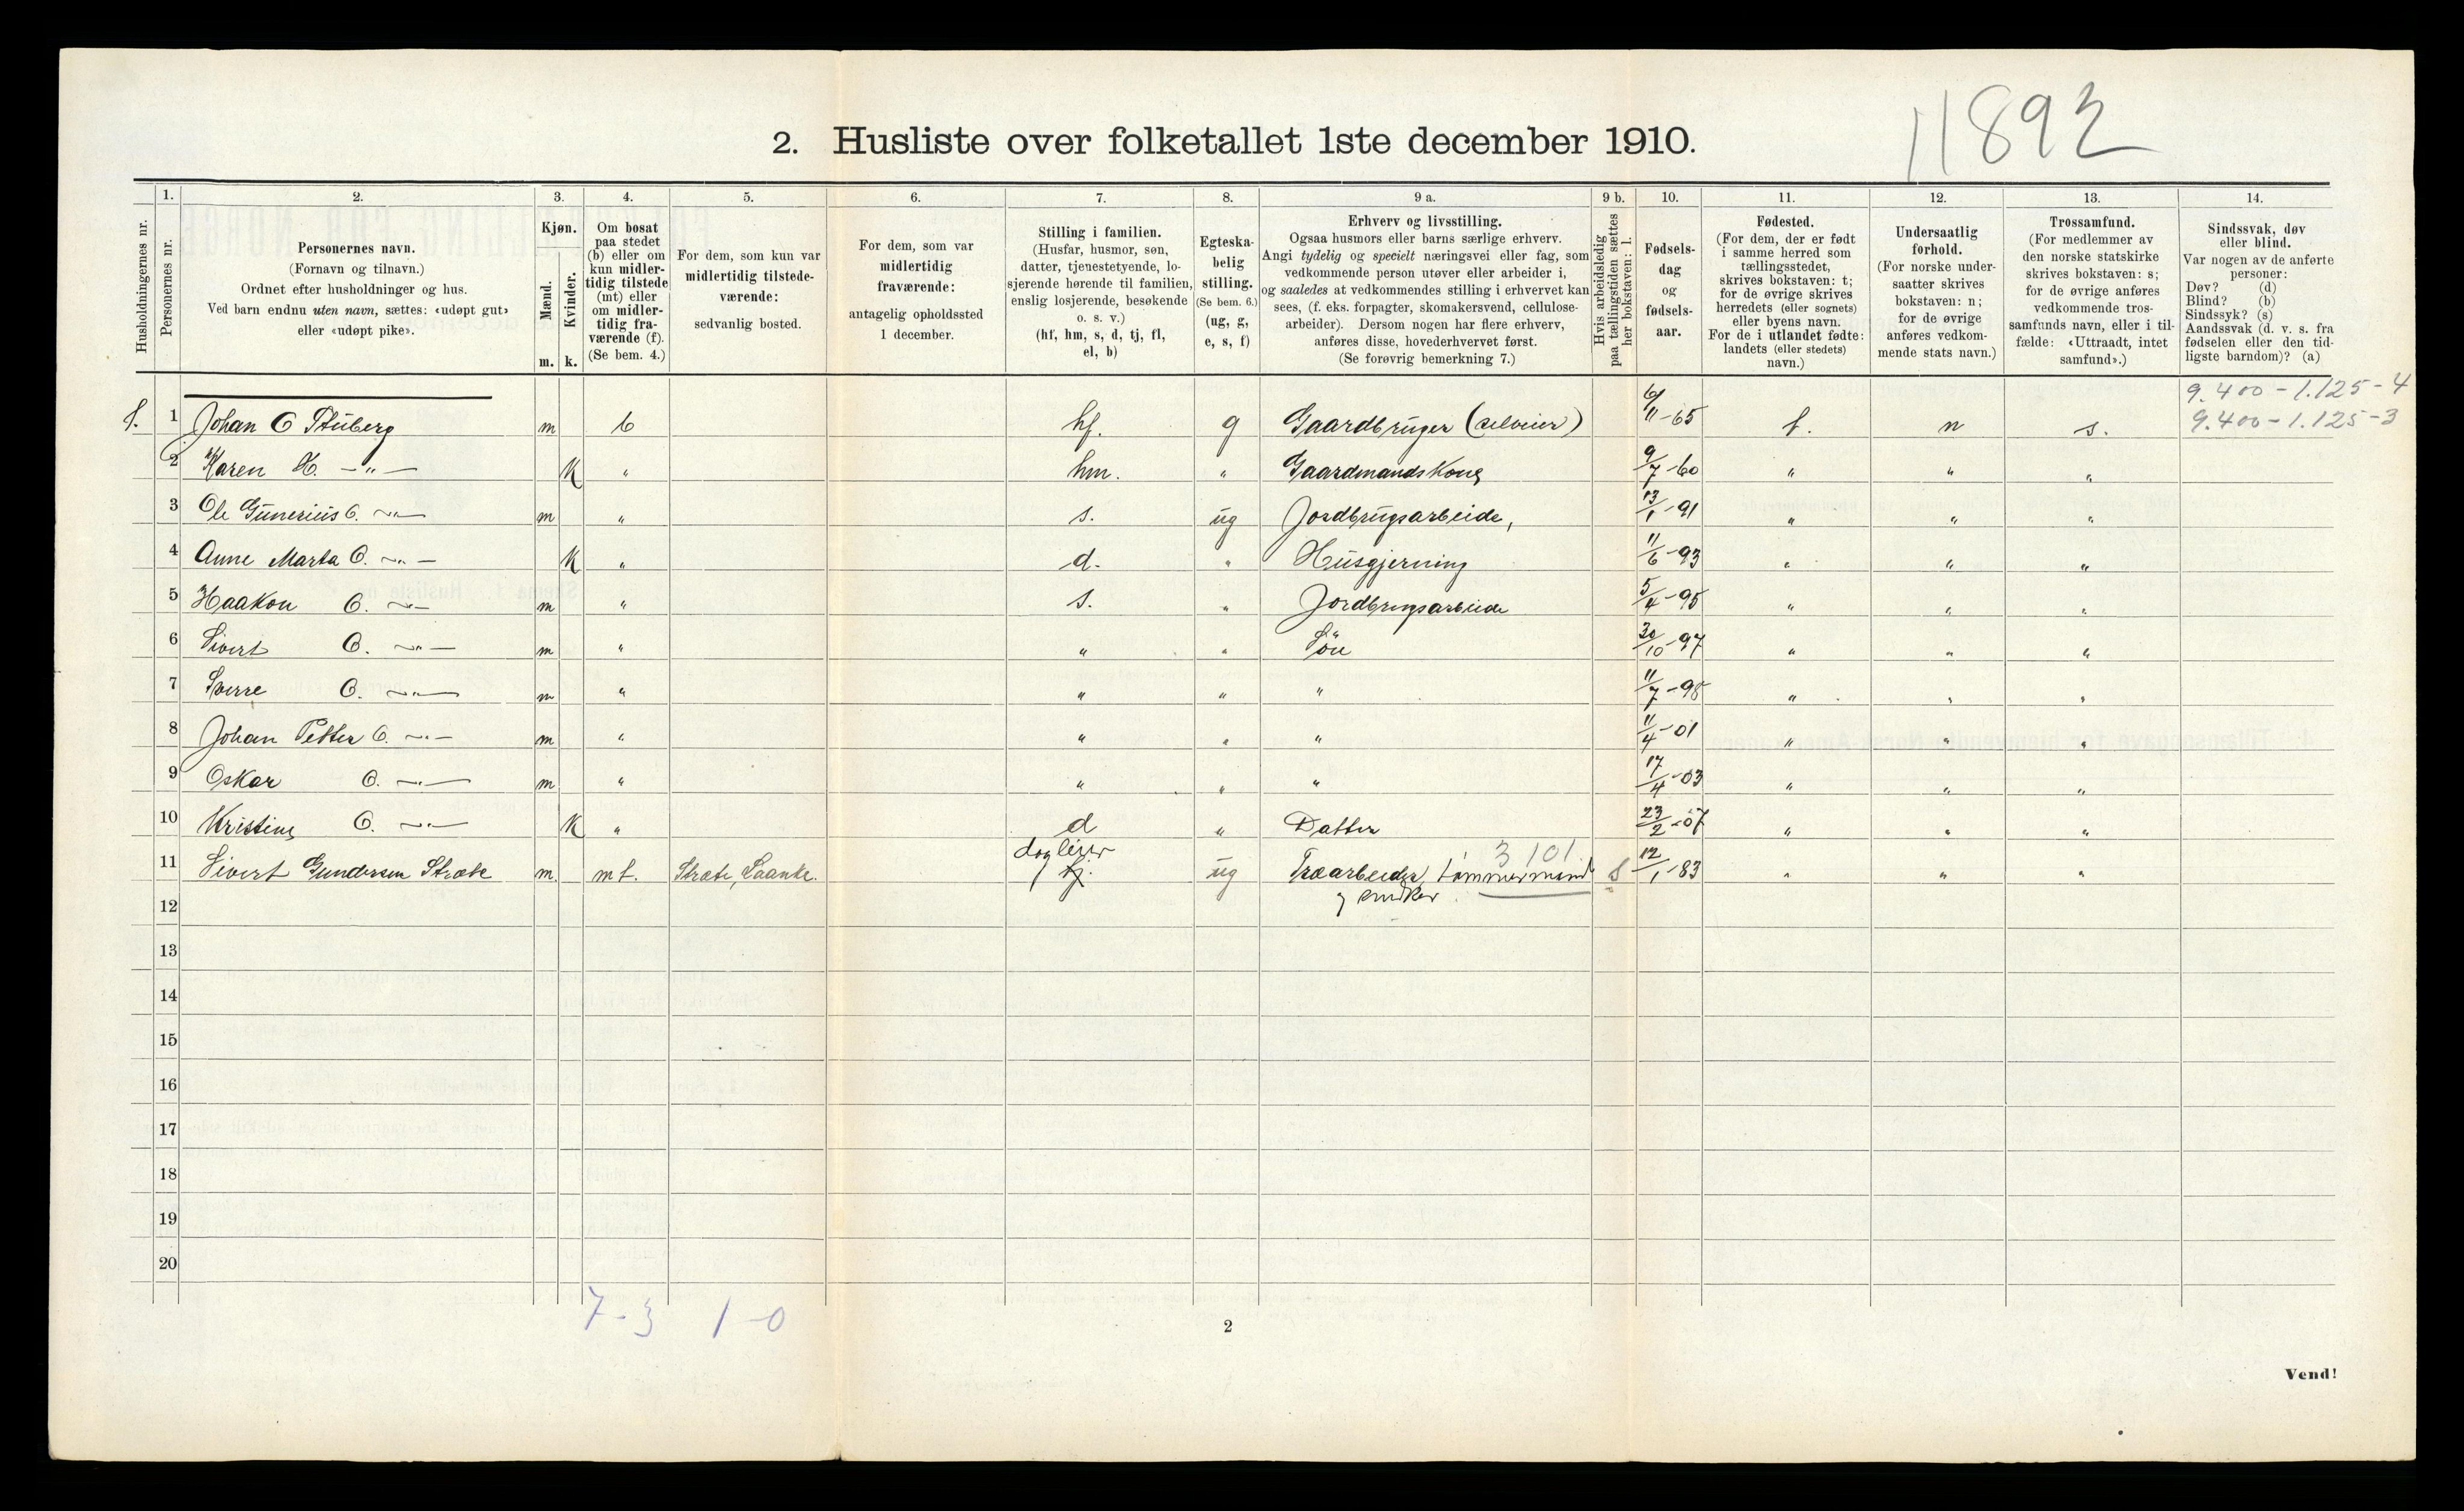 11892
2. Husliste over folketallet 1ste december 1910.
Husholdningernes nr.
1.
Personernes nr.
2.
Personernes navn.
(Fornavn og tilnavn.)
Ordnet efter husholdninger og hus.
Ved barn endnu uten navn, sættes: «udøpt gut»
eller «udøpt pike».
3.
Kjøn.
Mænd.
Kvinder.
m. k.
4.
Om bosat
paa stedet
(b) eller om
kun midler-
tidig tilstede
(mt) eller
om midler-
tidig fra-
værende (f).
(Se bem. 4.)
5.
For dem, som kun var
midlertidig tilstede-
værende:
sedvanlig bosted.
6.
For dem, som var
midlertidig
fraværende:
antagelig opholdssted
1 december.
7.
Stilling i familien.
(Husfar, husmor, søn,
datter, tjenestetyende, lo-
sjerende hørende til familien,
enslig losjerende, besøkende
o. s. v.)
(hf, hm, s, d, tj, fl,
el, b)
8.
Egteska-
belig
stilling.
(Se bem. 6.)
(ug, g,
e, s, f)
9 a.
Erhverv og livsstilling.
Ogsaa husmors eller barns særlige erhverv.
Angi tydelig og specielt næringsvei eller fag, som
vedkommende person utøver eller arbeider i,
og saaledes at vedkommendes stilling i erhvervet kan
sees, (f. eks. forpagter, skomakersvend, cellulose-
arbeider). Dersom nogen har flere erhverv,
anføres disse, hovederhvervet først.
(Se forøvrig bemerkning 7.)
9 b.
Hvis arbeidsledig
paa tællingstiden sættes
her bokstaven: l.
10.
Fødsels-
dag
og
fødsels-
aar.
11.
Fødested.
(For dem, der er født
i samme herred som
tællingsstedet,
skrives bokstaven: t;
for de øvrige skrives
herredets (eller sognets)
eller byens navn.
For de i utlandet fødte:
landets (eller stedets)
navn.)
12.
Undersaatlig
forhold.
(For norske under-
saatter skrives
bokstaven: n;
for de øvrige
anføres vedkom-
mende stats navn.)
13.
Trossamfund.
(For medlemmer av
den norske statskirke
skrives bokstaven: s;
for de øvrige anføres
vedkommende tros-
samfunds navn, eller i til-
fælde: «Uttraadt, intet
samfund».)
14.
Sindssvak, døv
eller blind.
Var nogen av de anførte
personer:
Døv? (d)
Blind? (b)
Sindssyk? (s)
Aandssvak (d. v. s. fra
fødselen eller den tid-
ligste barndom)? (a)
9.400-1.125-4
9.400-1.125-3
1. 1 Johan O Stuberg m b hf. g Gaardbruger (selveier) 6/11-65 t. n s.
2 Karen H. -"- K " hm. " Gaardmandskone 9/7-60 " " "
3 Ole Gunerius O. -"- m " s. ug Jordbrugsarbeide, 13/1-91 " " "
4 Anne Marta O. -"- K " d. " Husgjerning 11/6-93 " " "
5 Haakon O. -"- m " s. " Jordbrugsarbeide 5/4-95 " " "
6 Sivert O. -"- m " " " Søn 30/10-97 " " "
7 Sverre O. -"- m " " " " 11/7-98 " " "
8 Johan Petter O. -"- m " " " " 11/4-01 " " "
9 Oskar O. -"- m " " " " 17/4-03 " " "
10 Kristine O. -"- K " d " Datter 23/2-07 " " "
11 Sivert Gundersen Stræte m. mt. Stræte, Laanke. losjer tj. ug Træarbeider, tømmermand 3101 12/1-83 " " "
og snidker
12
13
14
15
16
17
18
19
20
7-3 1-0
2
Vend!